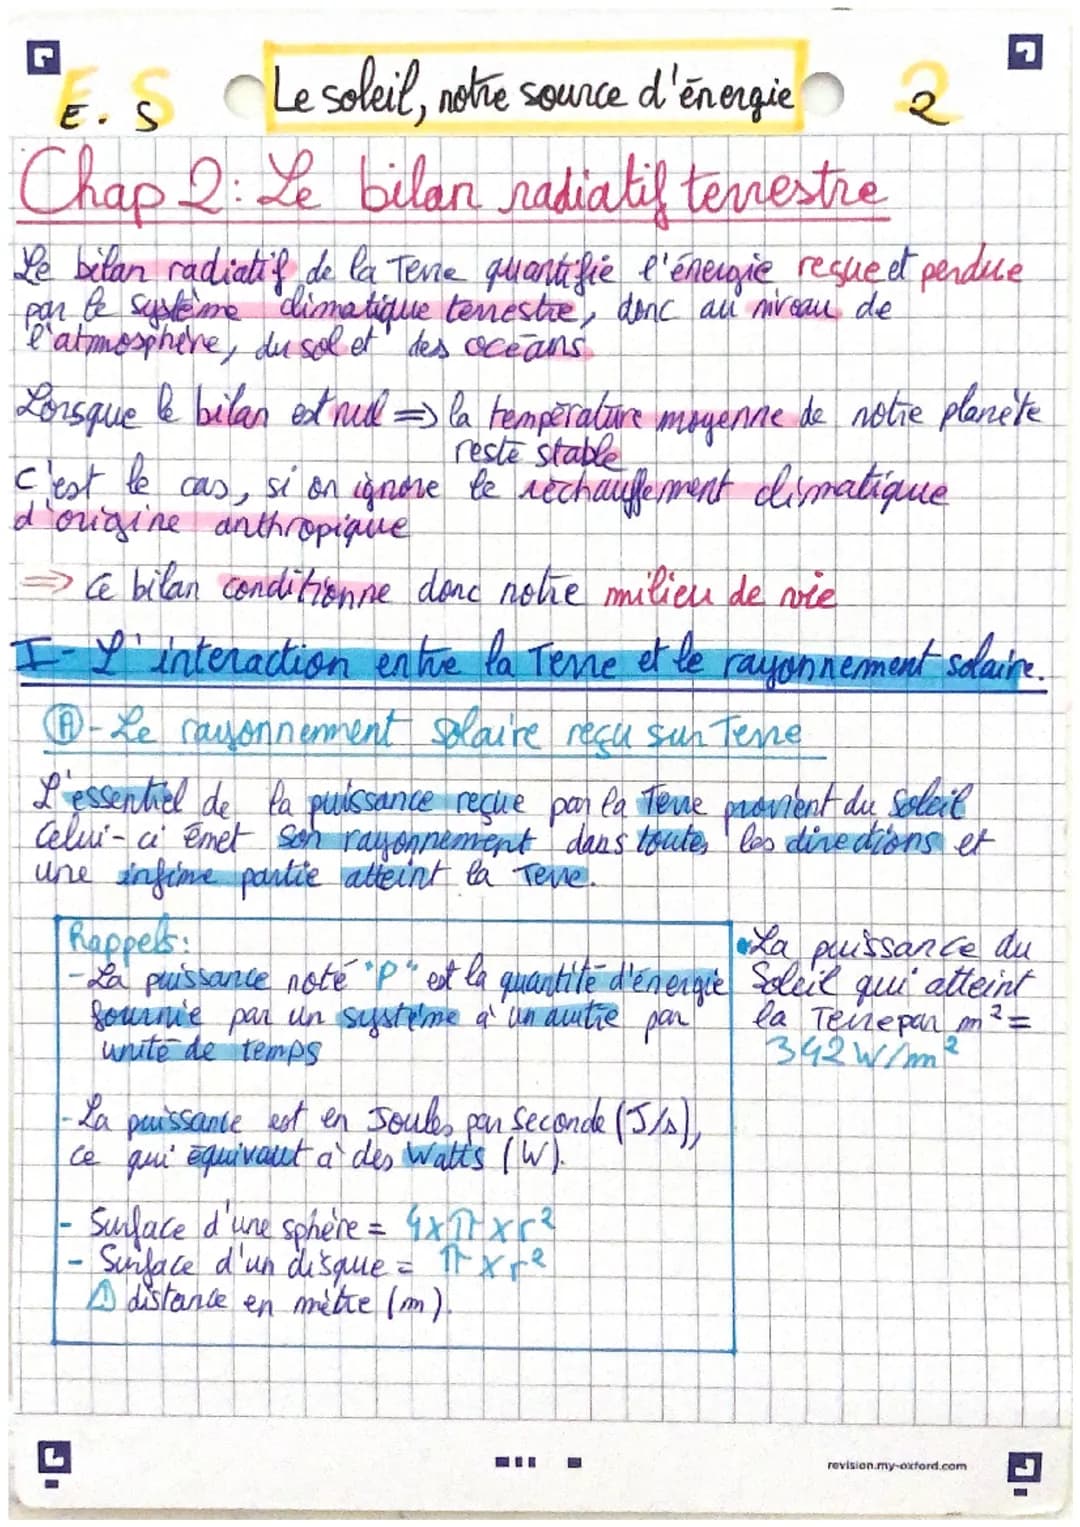 E.S
Le soleil, notre source d'énergie
2
Chap 2: Le bilan radiatif terrestre
Le bilan radiatif de la Terre quantifie l'énergie reçue et perdue
par le système climatique terrestre, donc au niveau de
l'atmosphère, du sol et des océans
Lorsque le bilan est nul => la température moyenne de notre planète
reste stable
C'est le cas, si on ignore le réchauffement climatique
d'origine anthropique
=> Ce bilan conditionne donc notre milieu de vie
I- L'interaction entre la Terre et le rayonnement solaire.
A - Le rayonnement solaire reçu sur Terre
L'essentiel de la puissance reçue par la Terre provient du Soleil
Celui-ci émet son rayonnement dans toutes les directions et
une infime partie atteint la Terre.
Rappels:
- La puissance noté "P" est la quantité d'énergie
fournie par un système à un autre par
unité de temps
- La puissance est en Joules par Seconde (J/s),
ce qui équivaut à des Watts (W).
- Surface d'une sphère = 4 x π x r²
- Surface d'un disque = π x r²
⚠ distance en mètre (m).
• La puissance du
Soleil qui atteint
la Terre par m² =
342 W/m²
revision.my-oxford.com